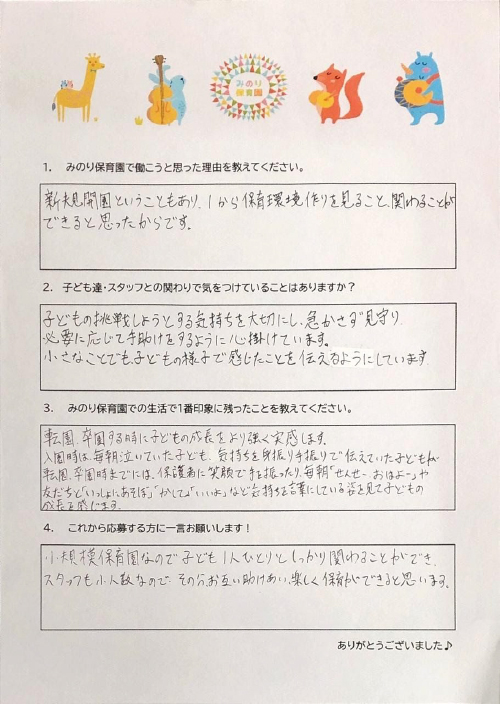 みのり
保育園
1． みのり保育園で働こうと思った理由を教えてください。
新規開園ということもあり、1から保育環境作りを見ること、関わることが
できると思ったからです。
2．子ども達・スタッフとの関わりで気をつけていることはありますか？
子どもの挑戦しようとする気持ちを大切にし、急かさず見守り
必要に応じて手助けをするように心掛けています。
小さなことでも子どもの様子で感じたことを伝えるようにしています
3． みのり保育園での生活で1番印象に残ったことを教えてください。
転園、卒園する時に子どもの成長をより強く実感します。
入園時は、毎朝泣いていた子ども、気持ちを身振り手振りで伝えていた子どもが
転園、卒園時までには、保護者に笑顔で手を振ったり、毎朝「せんせー、おはよー」や
友だちと「いっしょにあそぼ」「かして」「いいよ」など気持ちを言葉にしている姿を見て子どもの
成長を感じます。
4． これから応募する方に一言お願いします！
小規模保育園なので子ども1人ひとりとしっかり関わることができ、
スタッフも少人数なので、その分お互い助けあい、楽しく保育ができると思います。
ありがとうございました♪